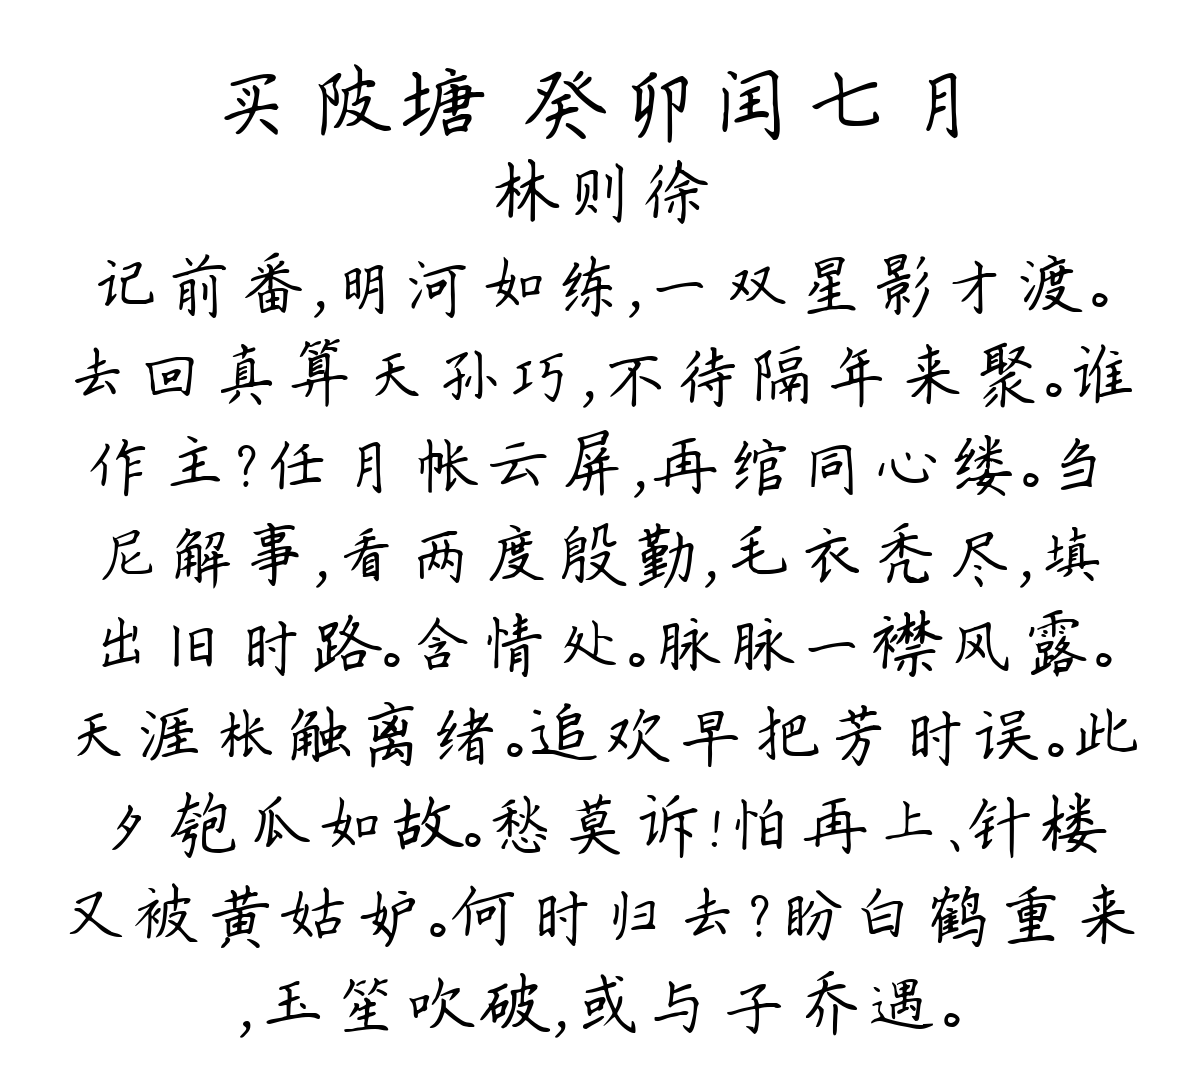 买陂塘 癸卯闰七月
林则徐
记前番,明河如练,一双星影才渡。
去回真算天孙巧,不待隔年来聚。谁
作主?任月帐云屏,再绾同心缕。刍
尼解事,看两度殷勤,毛衣秃尽,填
出旧时路。含情处。脉脉一襟风露。
天涯枨触离绪。追欢早把芳时误。此
夕匏瓜如故。愁莫诉!怕再上、针楼
又被黄姑妒。何时归去?盼白鹤重来
,玉笙吹破,或与子乔遇。